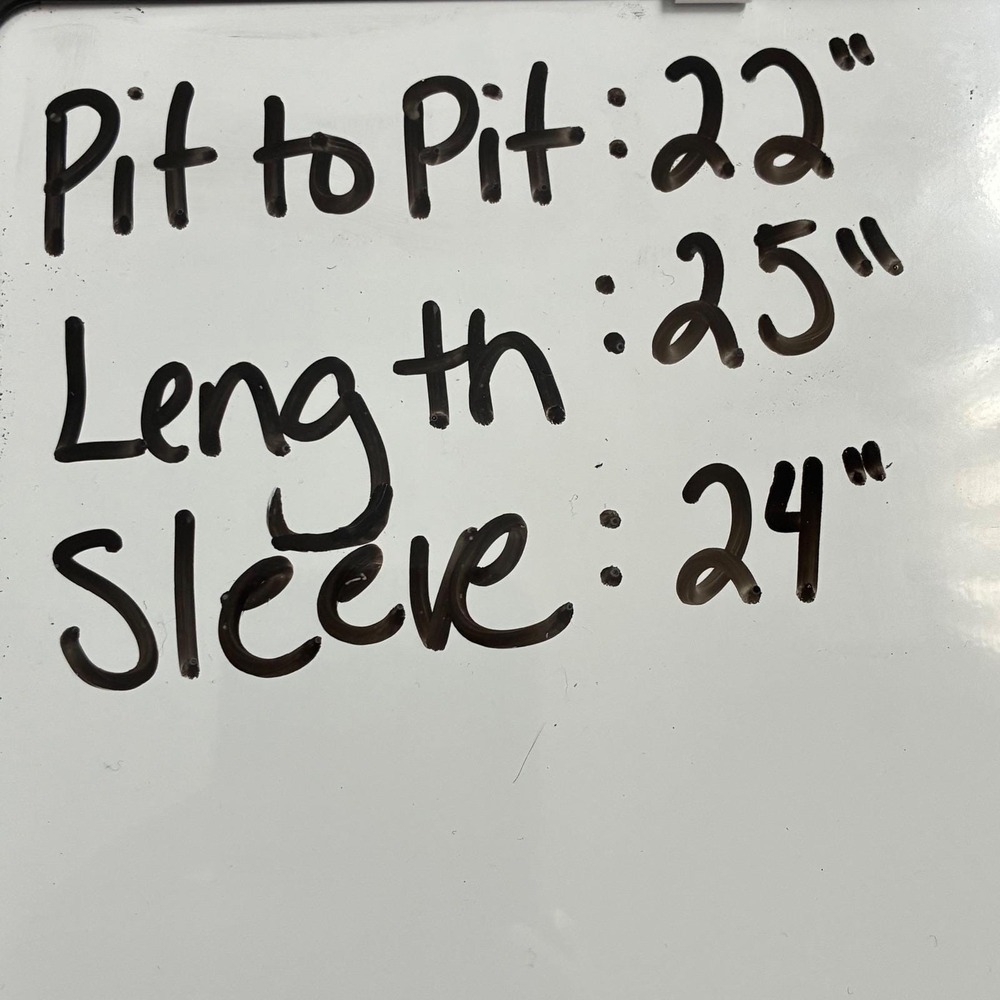 Pit to Pit : 22"
Length : 25"
Sleeve : 24"